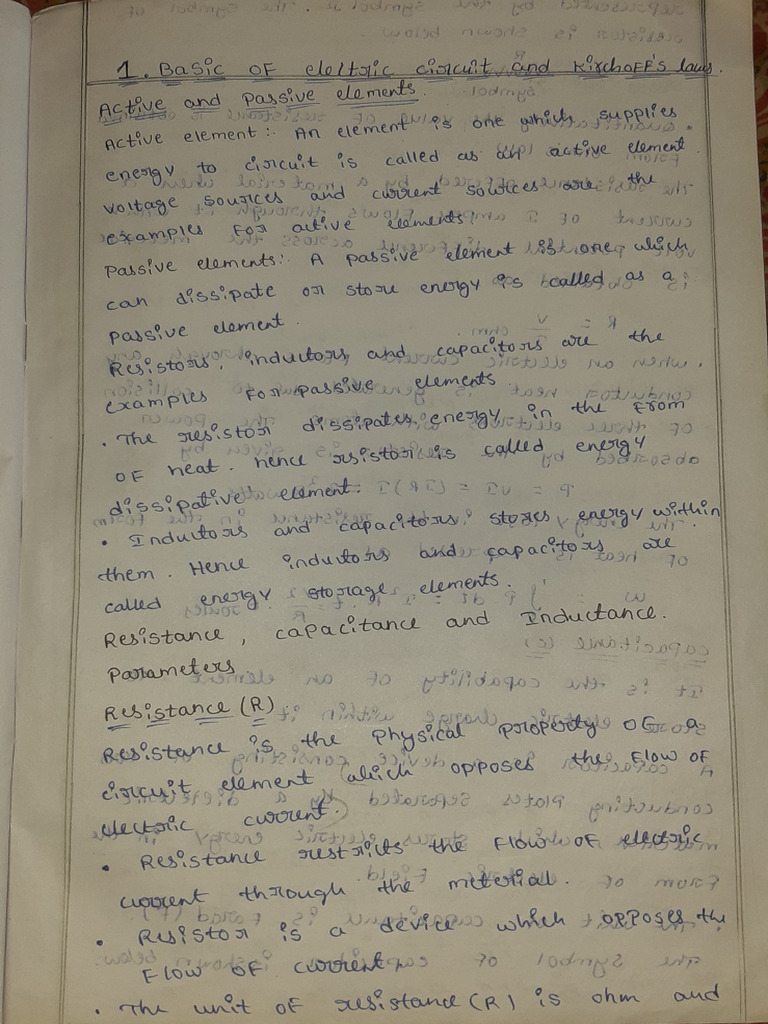 1. Basic OF eleltric circuit and Kirchoff's laws.
Active and Passive elements.
Active element:. An element is one which supplies
energy to circuit is called as an active element.
voltage sources and current sources are the
examples For active elements.
Passive elements:. A passive element is one which
can dissipate or store energy is called as a
passive element.
Resistors, inductors and capacitors are the
examples For passive elements.
• The resistor dissipates energy in the From
OF heat. hence resistor is called energy
dissipative element.
• Inductors and capacitors stores energy within
them. Hence inductors and capacitors are
called energy storage elements.
Resistance, capacitance and Inductance.
Parameters
Resistance (R)
Resistance is the physical property OF a
circuit element which opposes the Flow OF
electric current.
• Resistance restricts the Flow OF electric
current through the meterial.
• Resistor is a device which opposes the
Flow OF current.
• The unit of resistance (R) is ohm and